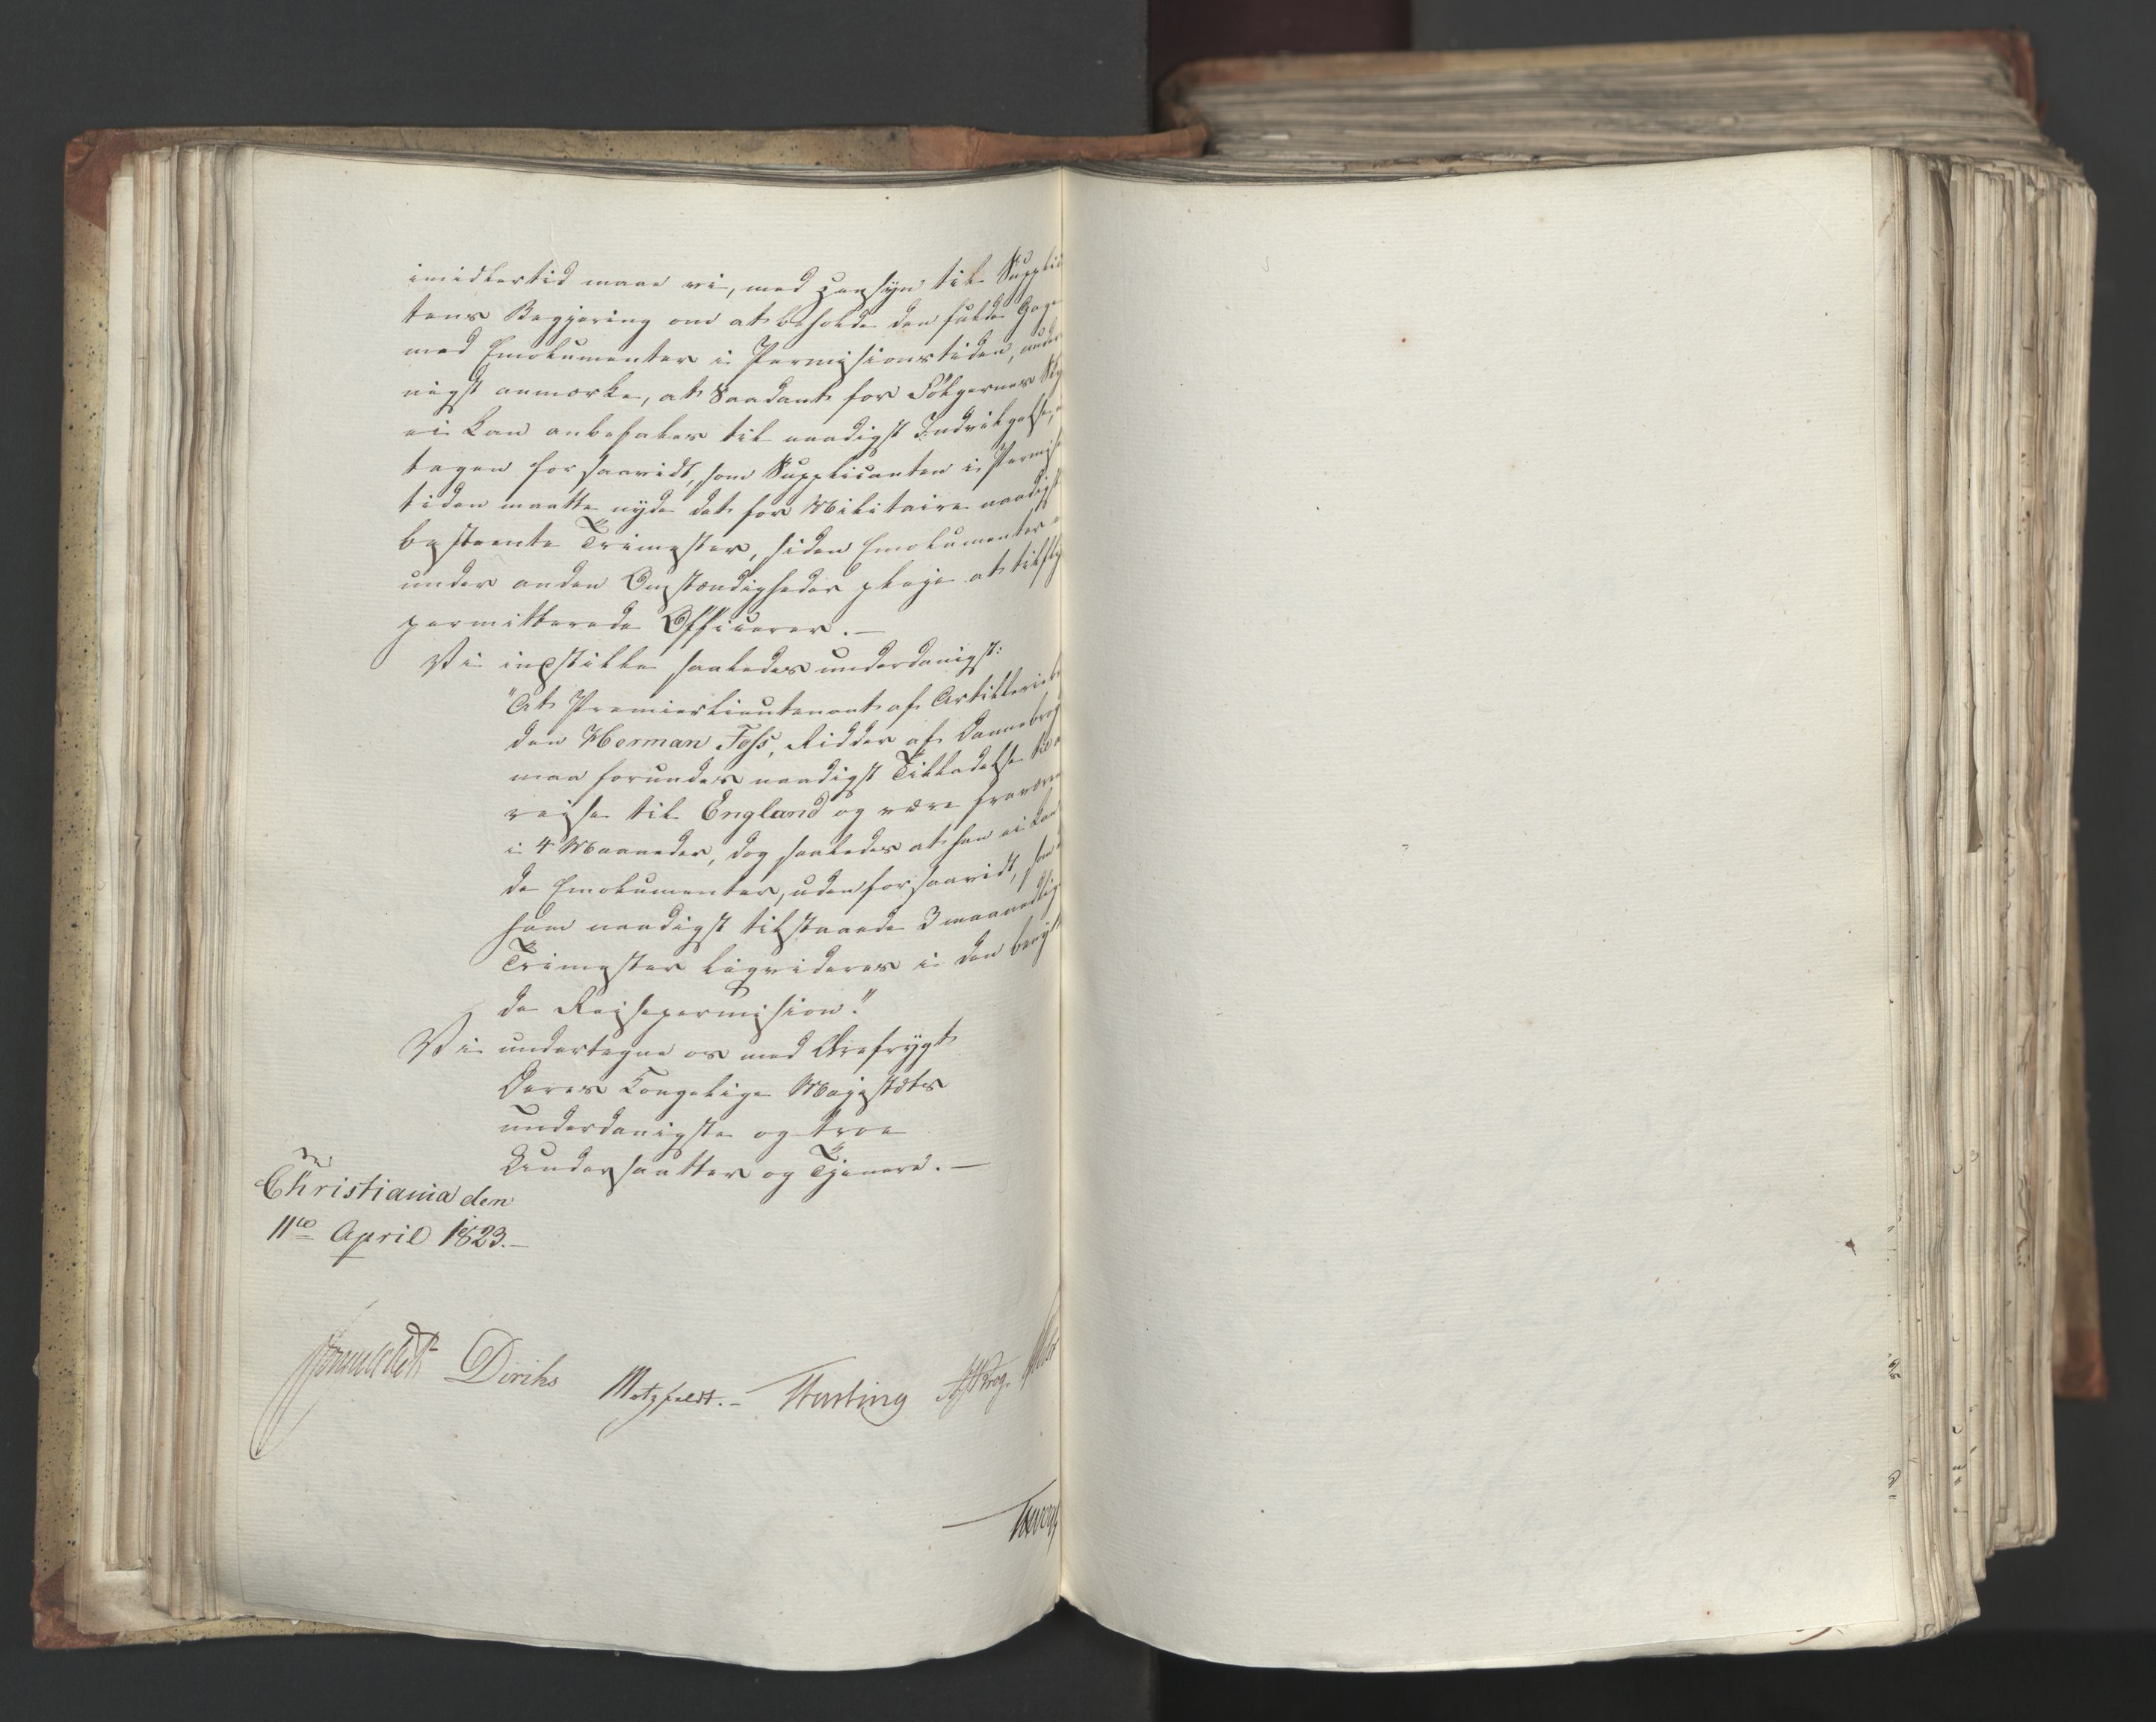 imidlertid maae vi, med Hensyn til Supplic
tens Begjering om at beholde den fulde Gage
med Emolumenter i Permissionstiden, under
nigst anmærke, at Saadant for Følgernes Sky
ei kan anbefales til naadigst Indvilgelse,
tagen forsaavidt, som Supplicanten i Permiss
tiden maatte nyde det for Militaire naadigst
bestemte Trimester, siden Emolumenter
under anden Omstændigheder pleje at tilfly
permitterede Officerer.—
Vi indstille saaledes underdanigst:
"At Premierlieutenant af Artilleriet
den Herman Foss, Ridder af Dannebrog
maa forundes naadigst Tilladelse til
reise til England og være fravære
i 4 Maaneder, dog saaledes at han ei
de Emolumenter, uden forsaavidt, som
ham naadigst tilstaaede 3 maanedlig
Trimester liqvideres i den
de Reisepermission."
Vi undertegne os med Ærefrygt
Deres Kongelige Majestæts
underdanigste og troe
Undersaatter og Tjenere.—
Christiania den
11te April 1823.—
Sommerhielm Diriks Motzfeldt.— Fasting